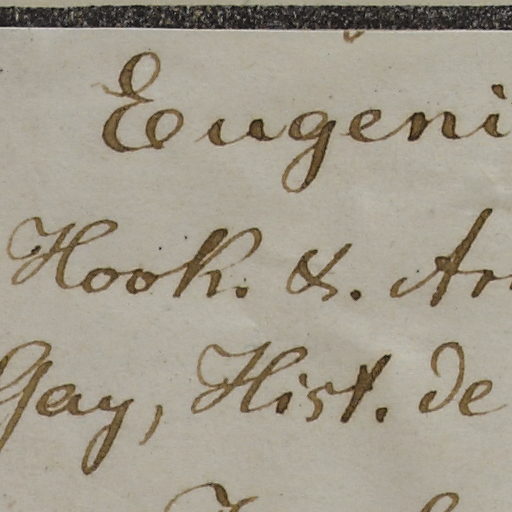 Eugeni
Hook. & Ar
Gay, Hist. de